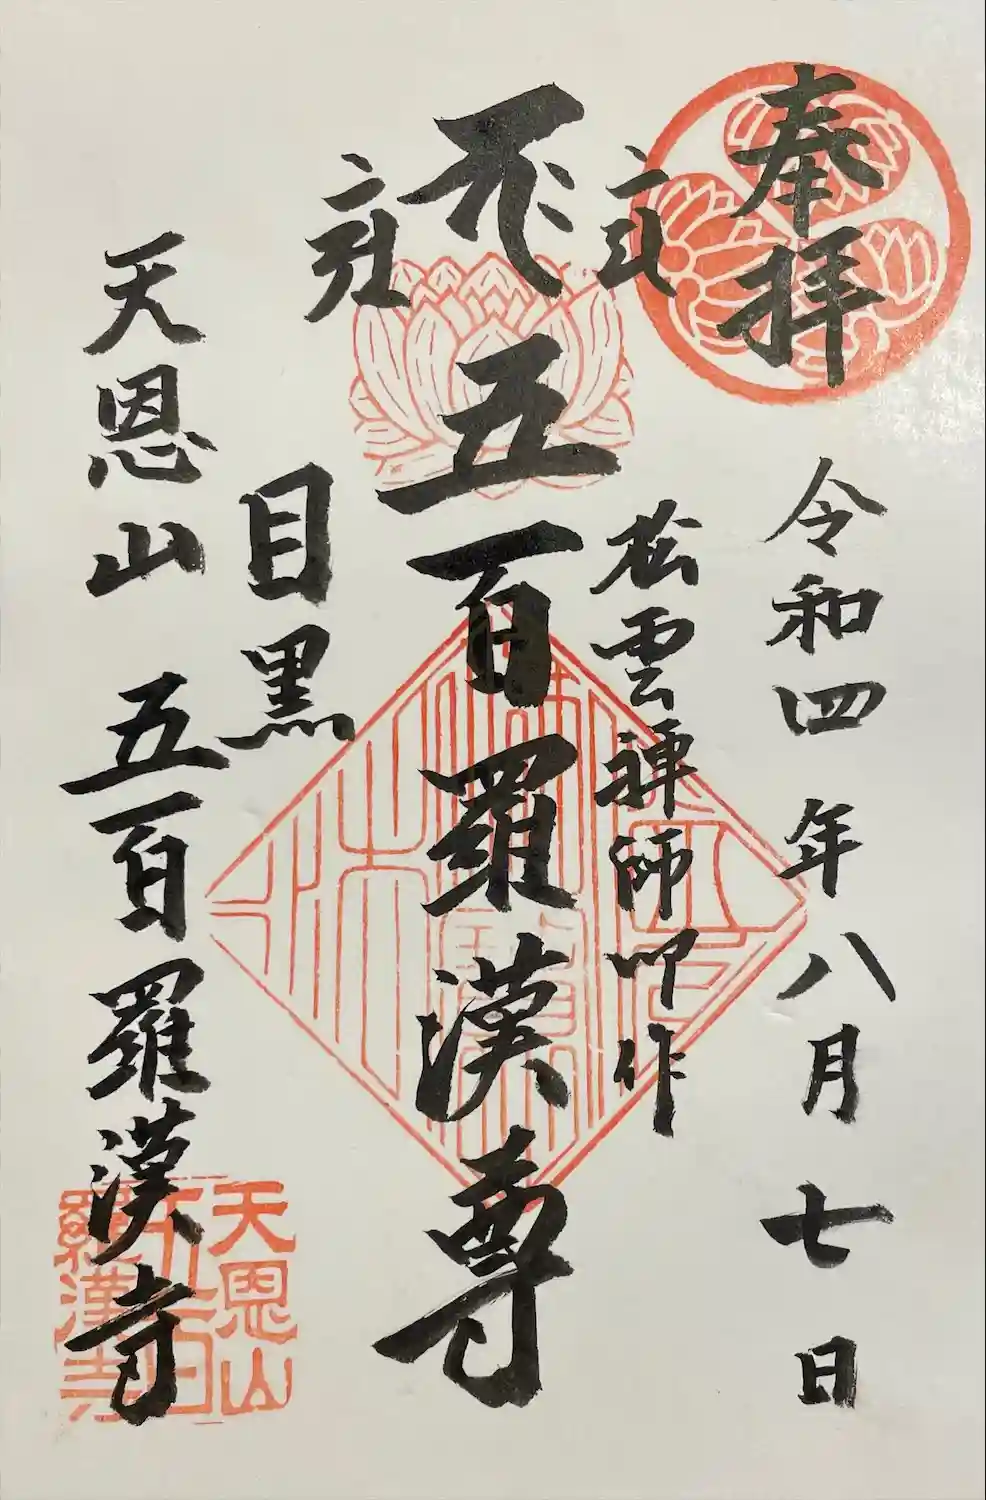 奉拝
令和四年八月七日
松雲禪師作
五百羅漢尊
目黒
天恩山 五百羅漢寺
天恩山
五百
羅漢寺